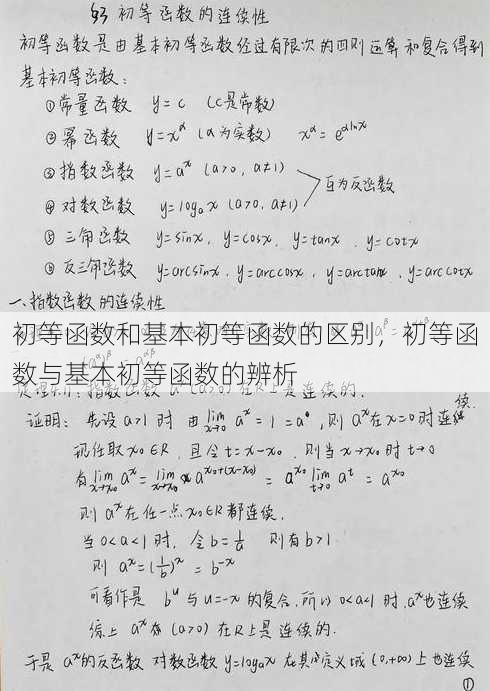 §3 初等函数的连续性
初等函数是由基本初等函数经过有限次的四则运算和复合得到
基本初等函数：
①常量函数 y=c (C是常数)
②幂函数 y=x^α (α为实数) x^α=e^{αlnx}
③指数函数 y=a^x (a>0, a≠1)
互为反函数
④对数函数 y=log_a x (a>0, a≠1)
⑤三角函数 y=sinx, y=cosx, y=tanx, y=cotx
⑥反三角函数 y=arcsinx, y=arccosx, y=arctanx, y=arccotx
一、指数函数的连续性
初等函数和基本初等函数的区别，初等函
数与基本初等函数的辨析
指数函数 a^x (a>0) 在R上是连续的.
证明：先设 a>1 时 由 lim_{x→0} a^x = 1 = a^0, 则 a^x 在 x=0 时连续
现任取 x_0∈R, 且令 t=x-x_0, 则当 x→x_0 时 t→0
有 lim_{x→x_0} a^x = lim_{x→x_0} a^{x_0+(x-x_0)} = a^{x_0} lim_{t→0} a^t = a^{x_0}
则 a^x 在任一点 x_0∈R 都连续.
当 0<a<1 时, 令 b=1/a 则有 b>1
则 a^x=(1/b)^x = b^{-x}
可看作是 b^u 与 u=-x 的复合, 所以 0<a<1 时, a^x 也连续
综上 a^x (a>0) 在R上是连续的.
于是 a^x 的反函数 对数函数 y=log_a x 在其定义域 (0,+∞) 上也连续
①